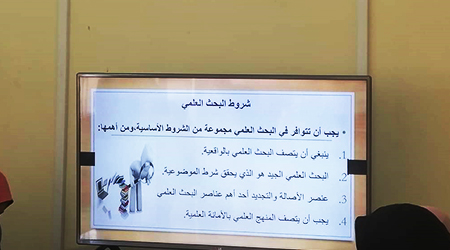 شروط البحث العلمي
• يجب أن تتوافر في البحث العلمي مجموعة من الشروط الأساسية،ومن أهمها:
1. ينبغي أن يتصف البحث العلمي بالواقعية.
2. البحث العلمي الجيد هو الذي يحقق شرط الموضوعية.
3. عنصر الأصالة والتجديد أحد أهم عناصر البحث العلمي
4. يجب أن يتصف المنهج العلمي بالأمانة العلمية.